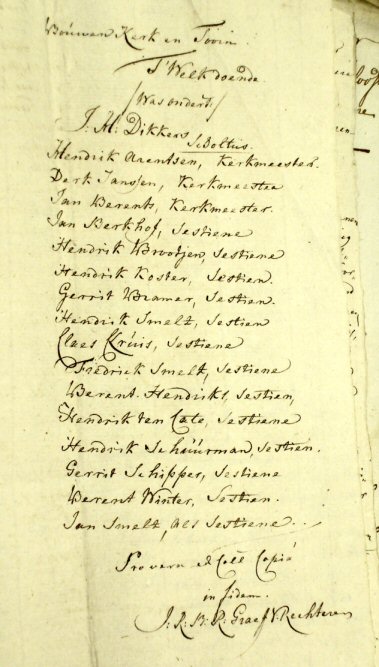 Bouwen Kerk en Toorn.
T'Welk doende
(Was ondert.)
J. H. Dikkers
Scholtus.
Hendrik Aarentsen, Kerkmeester.
Derk Janssen, Kerkmeester
Jan Berents, Kerkmeester.
Jan Berkhof, Sestiene
Hendrik Brootjen, Sestiene
Hendrik Koster, Sestien.
Gerrit Bramer, Sestien.
Hendrik Smelt, Sestien
Claes Krúis, Sestiene
Fredrick Smelt, Sestiene
Berent Hendriks, Sestien,
Hendrik ten Cate, Sestiene
Hendrik Schúúrman, Sestien.
Gerrit Schipper, Sestiene
Berent Winter, Sestien.
Jan Smelt, als Sestiene.
Pro vera & Coll Copia
in fidem.
Graef V. Rechteren